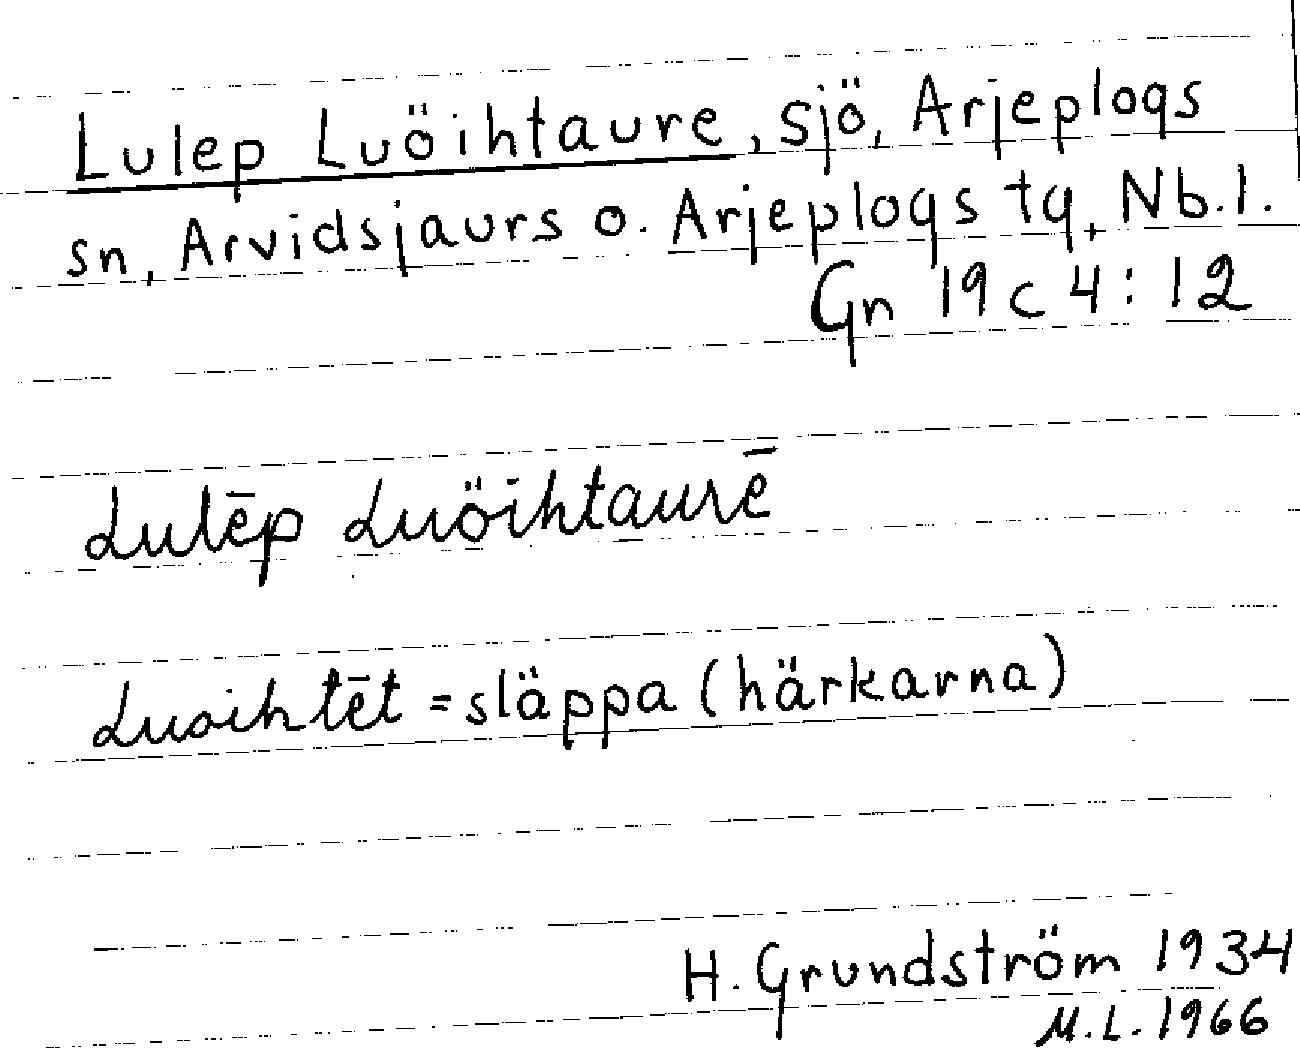 Lulep Luöihtaure, sjö, Arjeplogs
sn, Arvidsjaurs o. Arjeplogs tg, Nb.l.
Gn 19 c 4:12
Lulēp Luöihtaurē
Luoihtēt = släppa (härkarna)
H. Grundström 1934
M.L. 1966